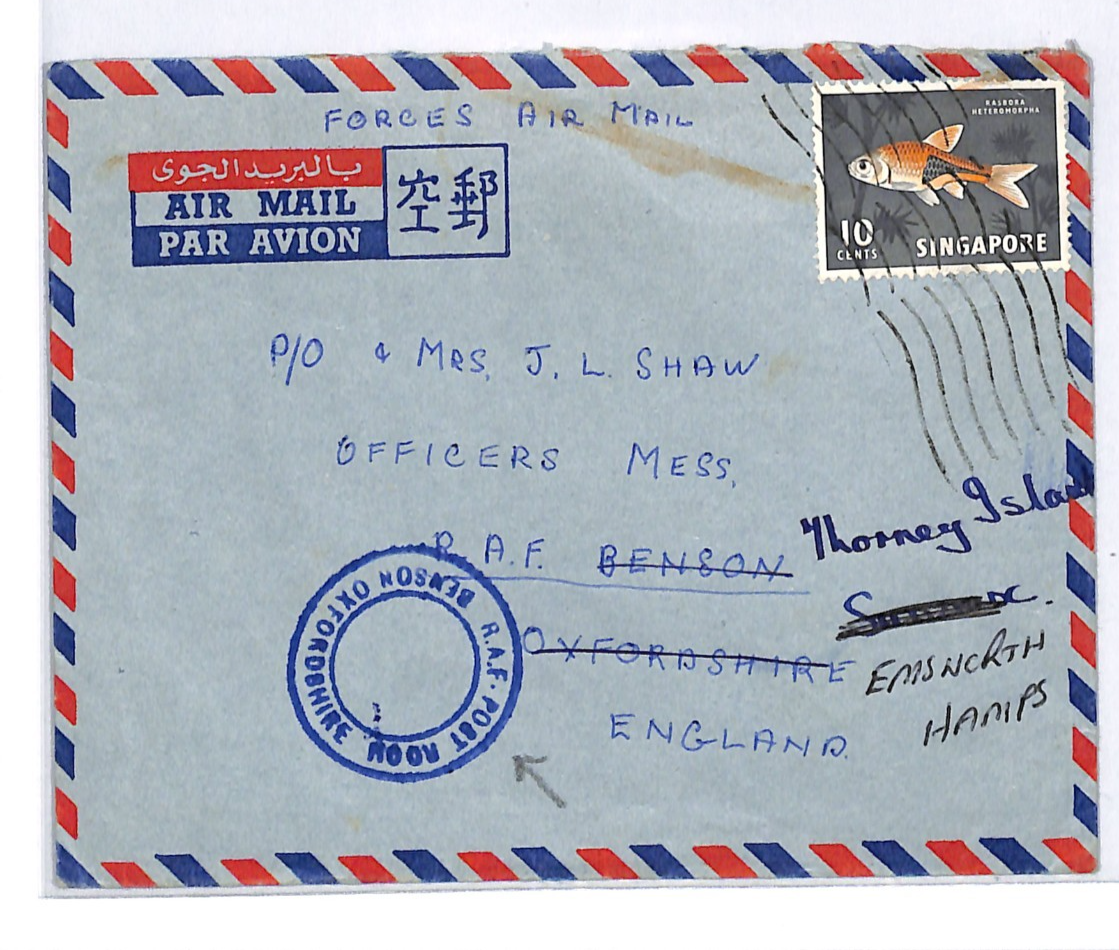 FORCES AIR MAIL
RASBORA
HETEROMORPHA
10
CENTS
SINGAPORE
بالبريد الجوى
AIR MAIL
PAR AVION
空郵
P/O & MRS. J. L. SHAW
OFFICERS MESS,
R.A.F. BENSON
Thorney Island
OXFORDSHIRE
EMSWORTH
HANTS
ENGLAND.
R.A.F. POST ROOM
BENSON OXFORDSHIRE